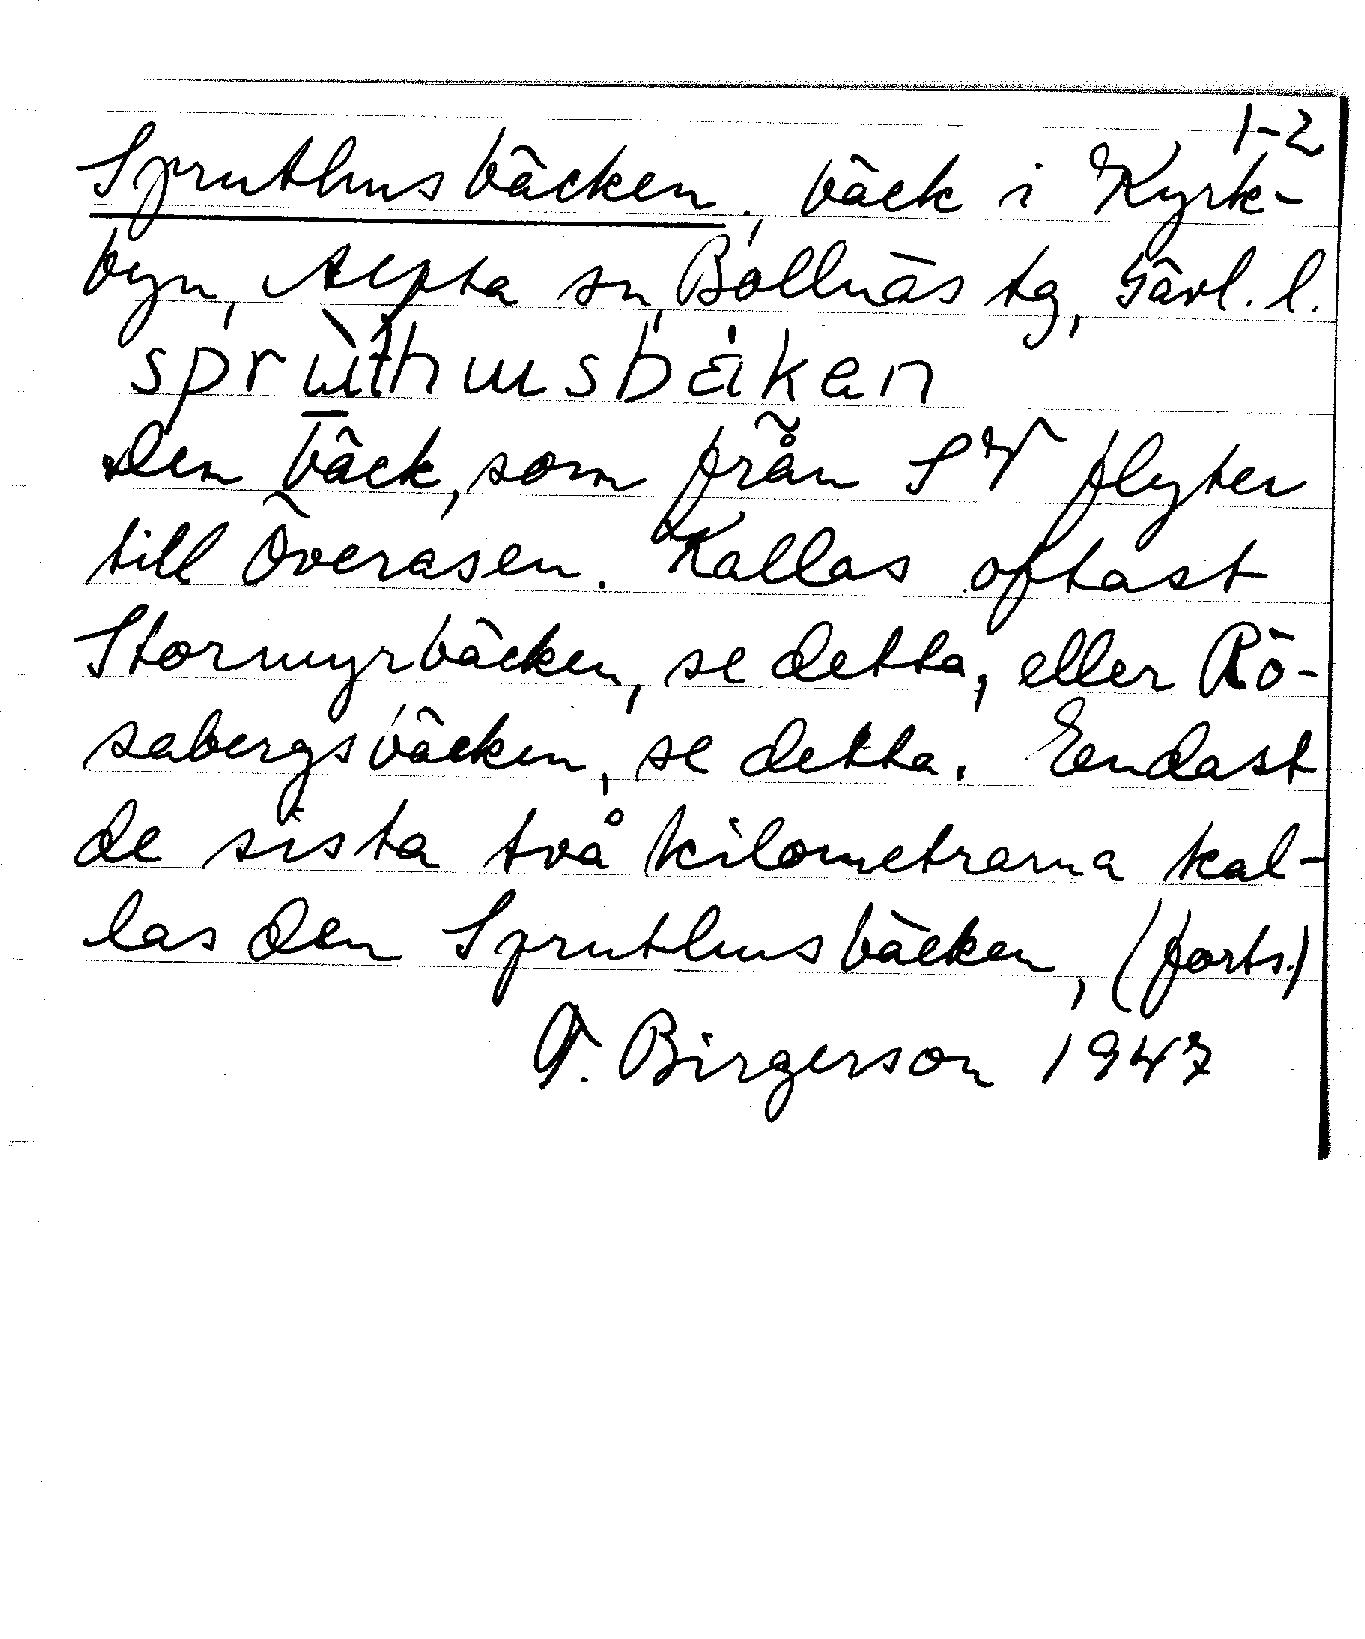 1-2
Spruthusbäcken, bäck i Kyrk-
byn, Alfta sn, Bollnäs tg, Gävl. l.
den bäck, som från SV flyter
till Överåsen. Kallas oftast
Stormyrbäcken, se detta, eller Rö-
sabergsbäcken, se detta. Endast
de sista två kilometrarna kal-
las den Spruthusbäcken, (forts.)
F. Birgerson 1947